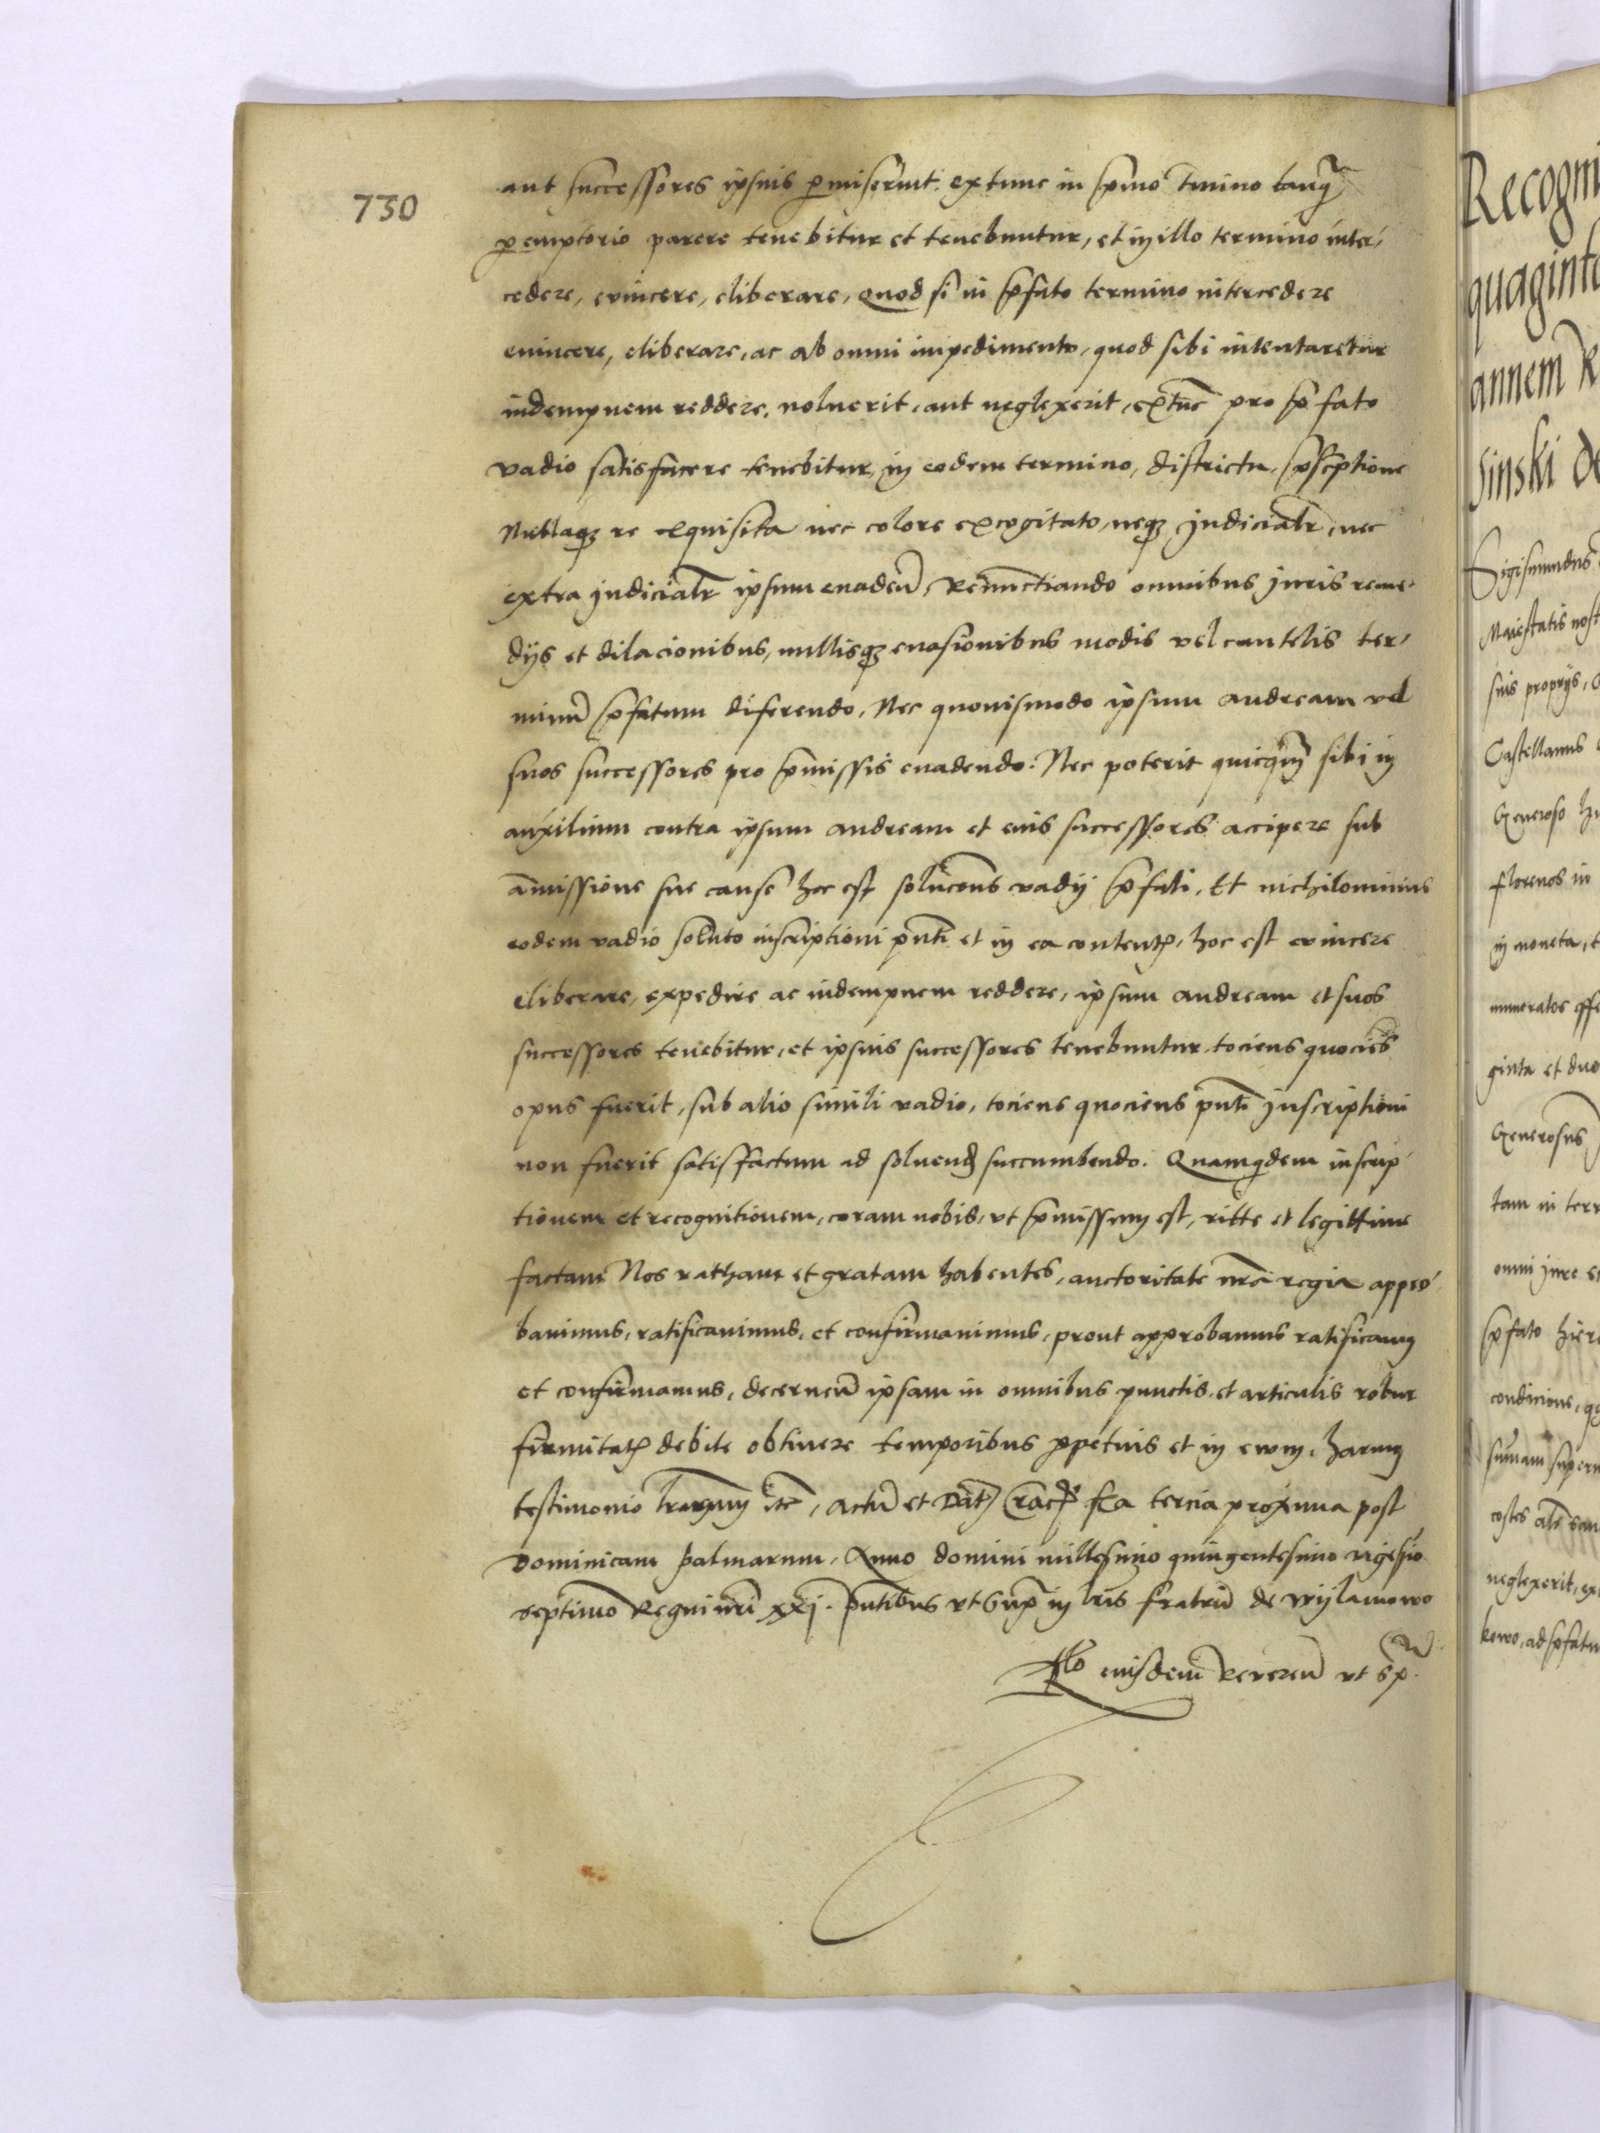 730
aut successores ipsius pmiserint. extunc in pmo tmino tanq
pemptorio parere tenebitur et tenebuntur, et in illo termino inter,
cedere, evincere, eliberare, Quod si in pfato termino intercedere
evincere, eliberare, ac ab omni impedimento, quod sibi intentaretur
indempnem reddere, noluerit, aut neglexerit, extunc pro pfato
vadio satisfacere tenebitur in eodem termino, districtu,
Nullaq re exquisita nec colore excogitato, neq judicialr, nec
extra judicialr ipsum evaden, Renunctiando omnibus juris reme,
dijs et dilacionibus, nullisq evasionibus modis vel cautelis ter,
minu pfatum diferendo, Nec quovismodo ipsum andream vel
suos successores pro pmissis evadendo. Nec poterit quicqm sibi in
auxilium contra ipsum andream et eius successores accipere sub
amissione sue cause hoc est soluconis vadij pfati, Et nichilominus
eodem vadio soluto inscriptioni pnti et in ea content, hoc est evincere
eliberare, expedire ac indempnem reddere, ipsum andream et suos
successores tenebitur, et ipsius successores tenebuntur tociens quociens
opus fuerit, sub alio simili vadio, tociens quociens pnti Inscriptioni
non fuerit satisfactum ad solvend succumbendo. Quamquidem inscrip,
tionem et recognitionem, coram nobis, vt pmissum est, ritte et legittime
factam Nos ratham et gratam habentes, auctoritate nra regia appro,
bavimus, ratificavimus, et confirmavimus, prout approbamus ratificam
et confirmamus, decernen ipsam in omnibus punctis et articulis robur
firmitat debite obtinere temporibus ppetuis et in ewm, harum
testimonio , Actu et Dat Crac fia tercia proxima post
Dominicam palmarum, Anno domini millesimo quingentesimo vigesio
septimo Regni nri xxj. pntibus vt Supra in lris fratru de wijlamowo
Rlo eiusdem Reveren vt S.
Recogni
quaginta
annem R
sinski de
Sigismundus
Maiestatis nost
suis proprijs,
Castellanus
Generoso
florenos in
in moneta,
numeratos
ginta et duo
Generosus
tam in terr
omni jure
pfato hier
condicione,
sumam super
neglexerit, ex
kowo, ad pfatu